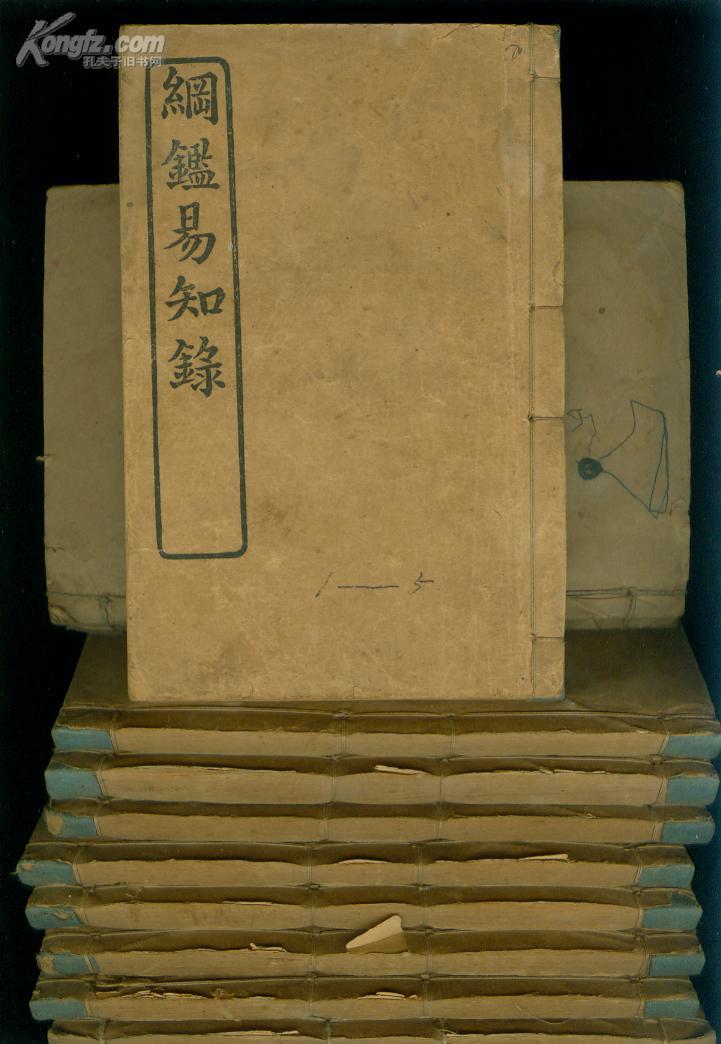 Kongfz.com
孔夫子旧书网
綱鑑易知錄
1—5